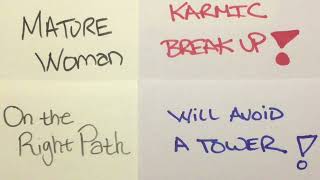 MATURE
WOMAN
KARMIC
BREAK UP!
On the
Right Path
WILL AVOID
A TOWER!